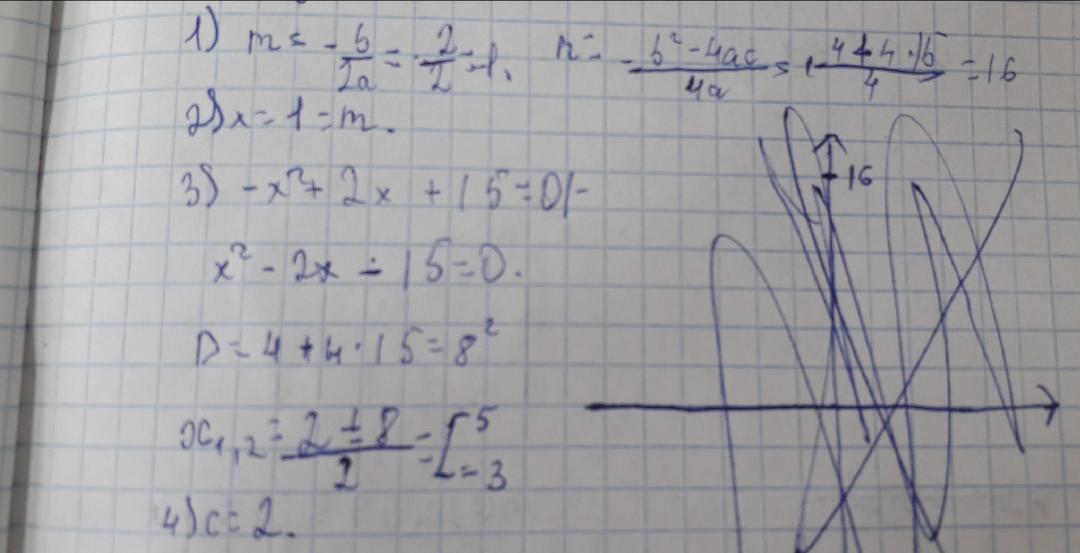 1) m = -b/2a = -2/2 = 1. n = -b²-4ac/4a = 4+4·15/4 = 16
2) x = 1 = m.
3) -x²+2x+15=0|-
16
x²-2x-15=0.
D=4+4·15=8²
x₁,₂ = 2±8/2 = [5 -3
4) c=2.